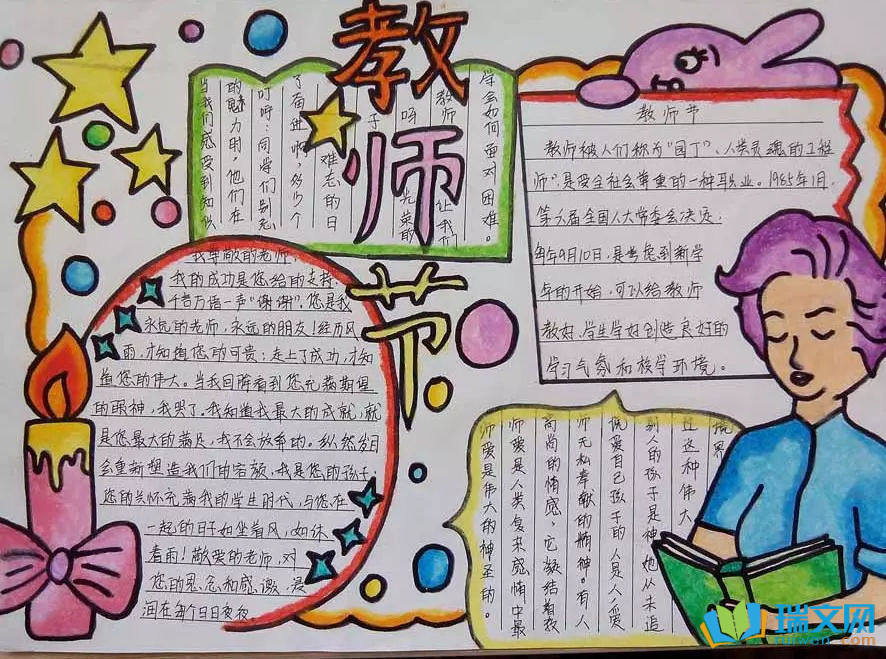 教师节
当我们感受到知识
的魅力时,他们在
叮咛:同学们别忘
了奋进啊,多少个
难忘的日
子
呀
教师 光荣的
让我们
学会如何面对困难。
教师节
教师被人们称为“园丁”、人类灵魂的工程
师”,是受全社会尊重的一种职业。1985年1月,
第六届全国人大常委会决定,
每年9月10日,是考虑到新学
年的开始,可以给教师
教好、学生学好创造良好的
学习气氛和校学环境。
我尊敬的老师,
我的成功是您给的支持,
千言万语一声“谢谢”。您是我
永远的老师,永远的朋友!经历风
雨,才知道您的可贵;走上了成功,才知
道您的伟大。当我回眸看到您充满期望
的眼神,我哭了。我知道我最大的成就,就
是您最大的满足,我不会放弃的。纵然岁月
会重新塑造我们的容颜,我是您的孩子,
您的关怀充满我的学生时代,与您在
一起的日子如坐着风,如沐
着雨!敬爱的老师,对
您的思念和感激,浸
润在每个日日夜夜。
师爱是伟大的神圣的。
师爱是人类复杂感情中最
高尚的情感,它凝结着教
师无私奉献的精神。有人
说爱自己孩子的人是人,爱
别人的孩子是神,她从未追
过这种伟大
境界
瑞文网
ruiwen.com